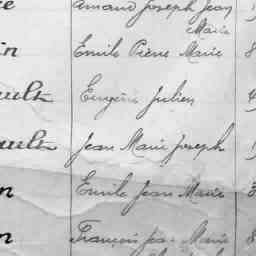 Armand Joseph Jean
Marie
in Emile Pierre Marie 8
ault Eugène Julien 4
ault Jean Marie Joseph 1
n Emile Jean Marie 3
n François Jean Marie 8